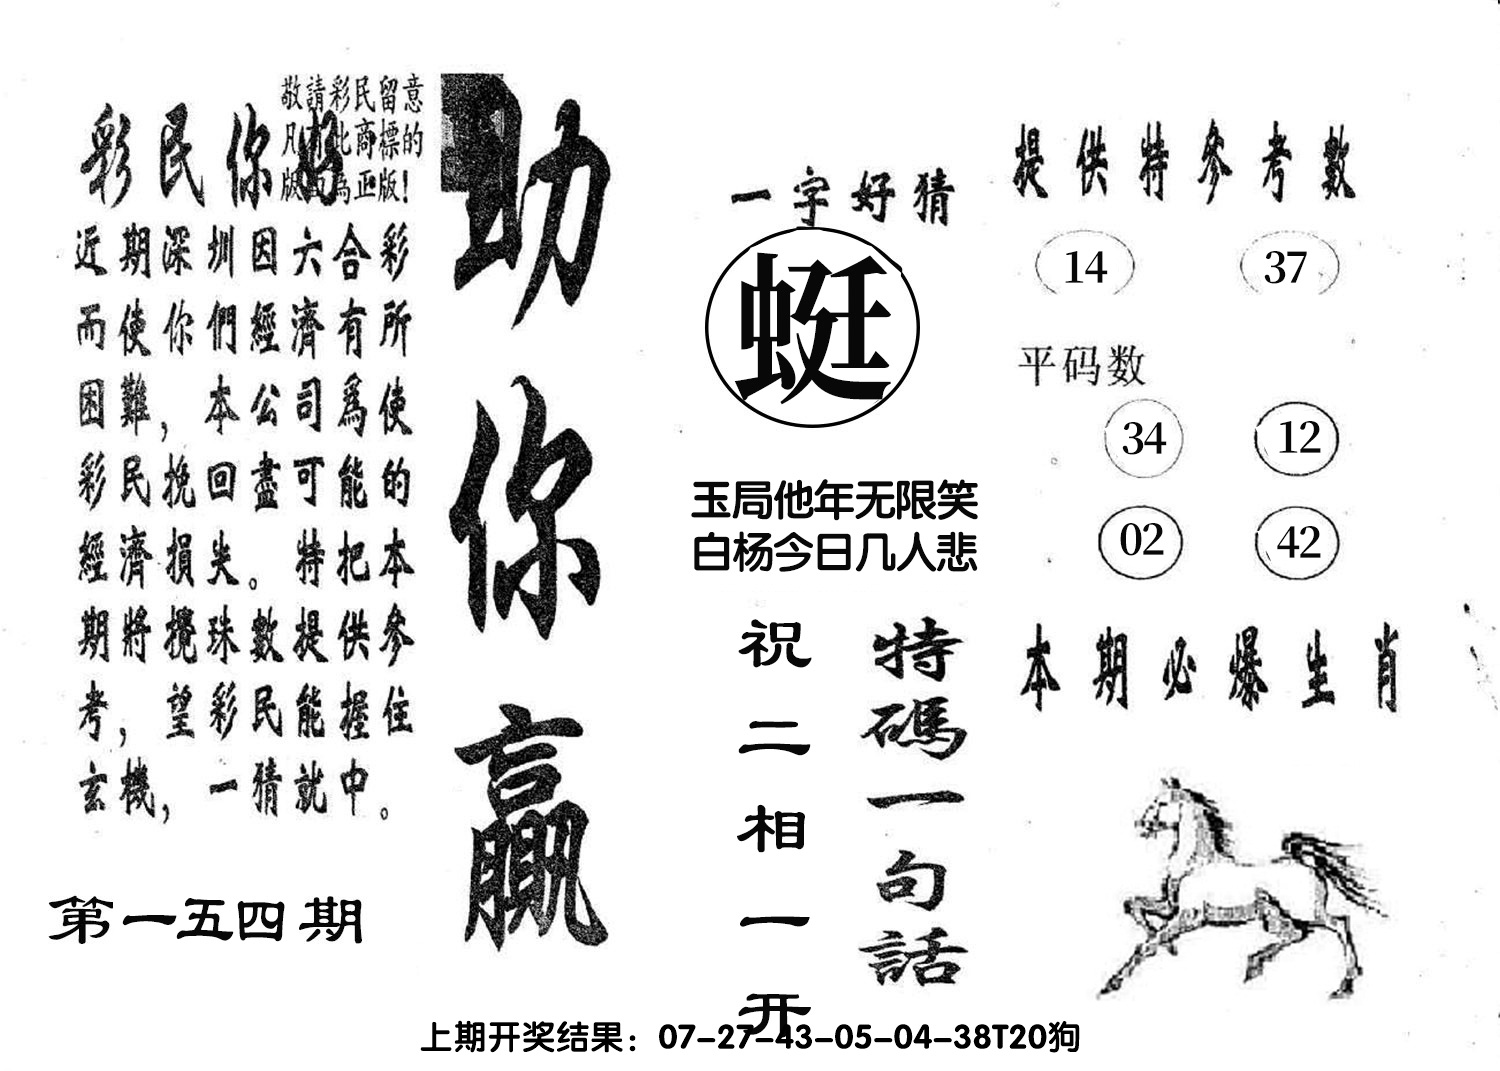 敬請彩民留意
凡有此商標的
版面為正版！
彩民你好
近期深圳因六合彩
而使你們經濟有所
困難，本公司爲使
彩民挽回盡可能的
經濟損失。特把本
期將攪珠數提供參
考，望彩民能握住
玄機，一猜就中。
第一五四期
助你贏
一字好猜
蜓
玉局他年无限笑
白杨今日几人悲
特碼一句話
祝二相一开
提供特參考數
14 37
平码数
34 12
02 42
本期必爆生肖
上期开奖结果：07-27-43-05-04-38T20狗